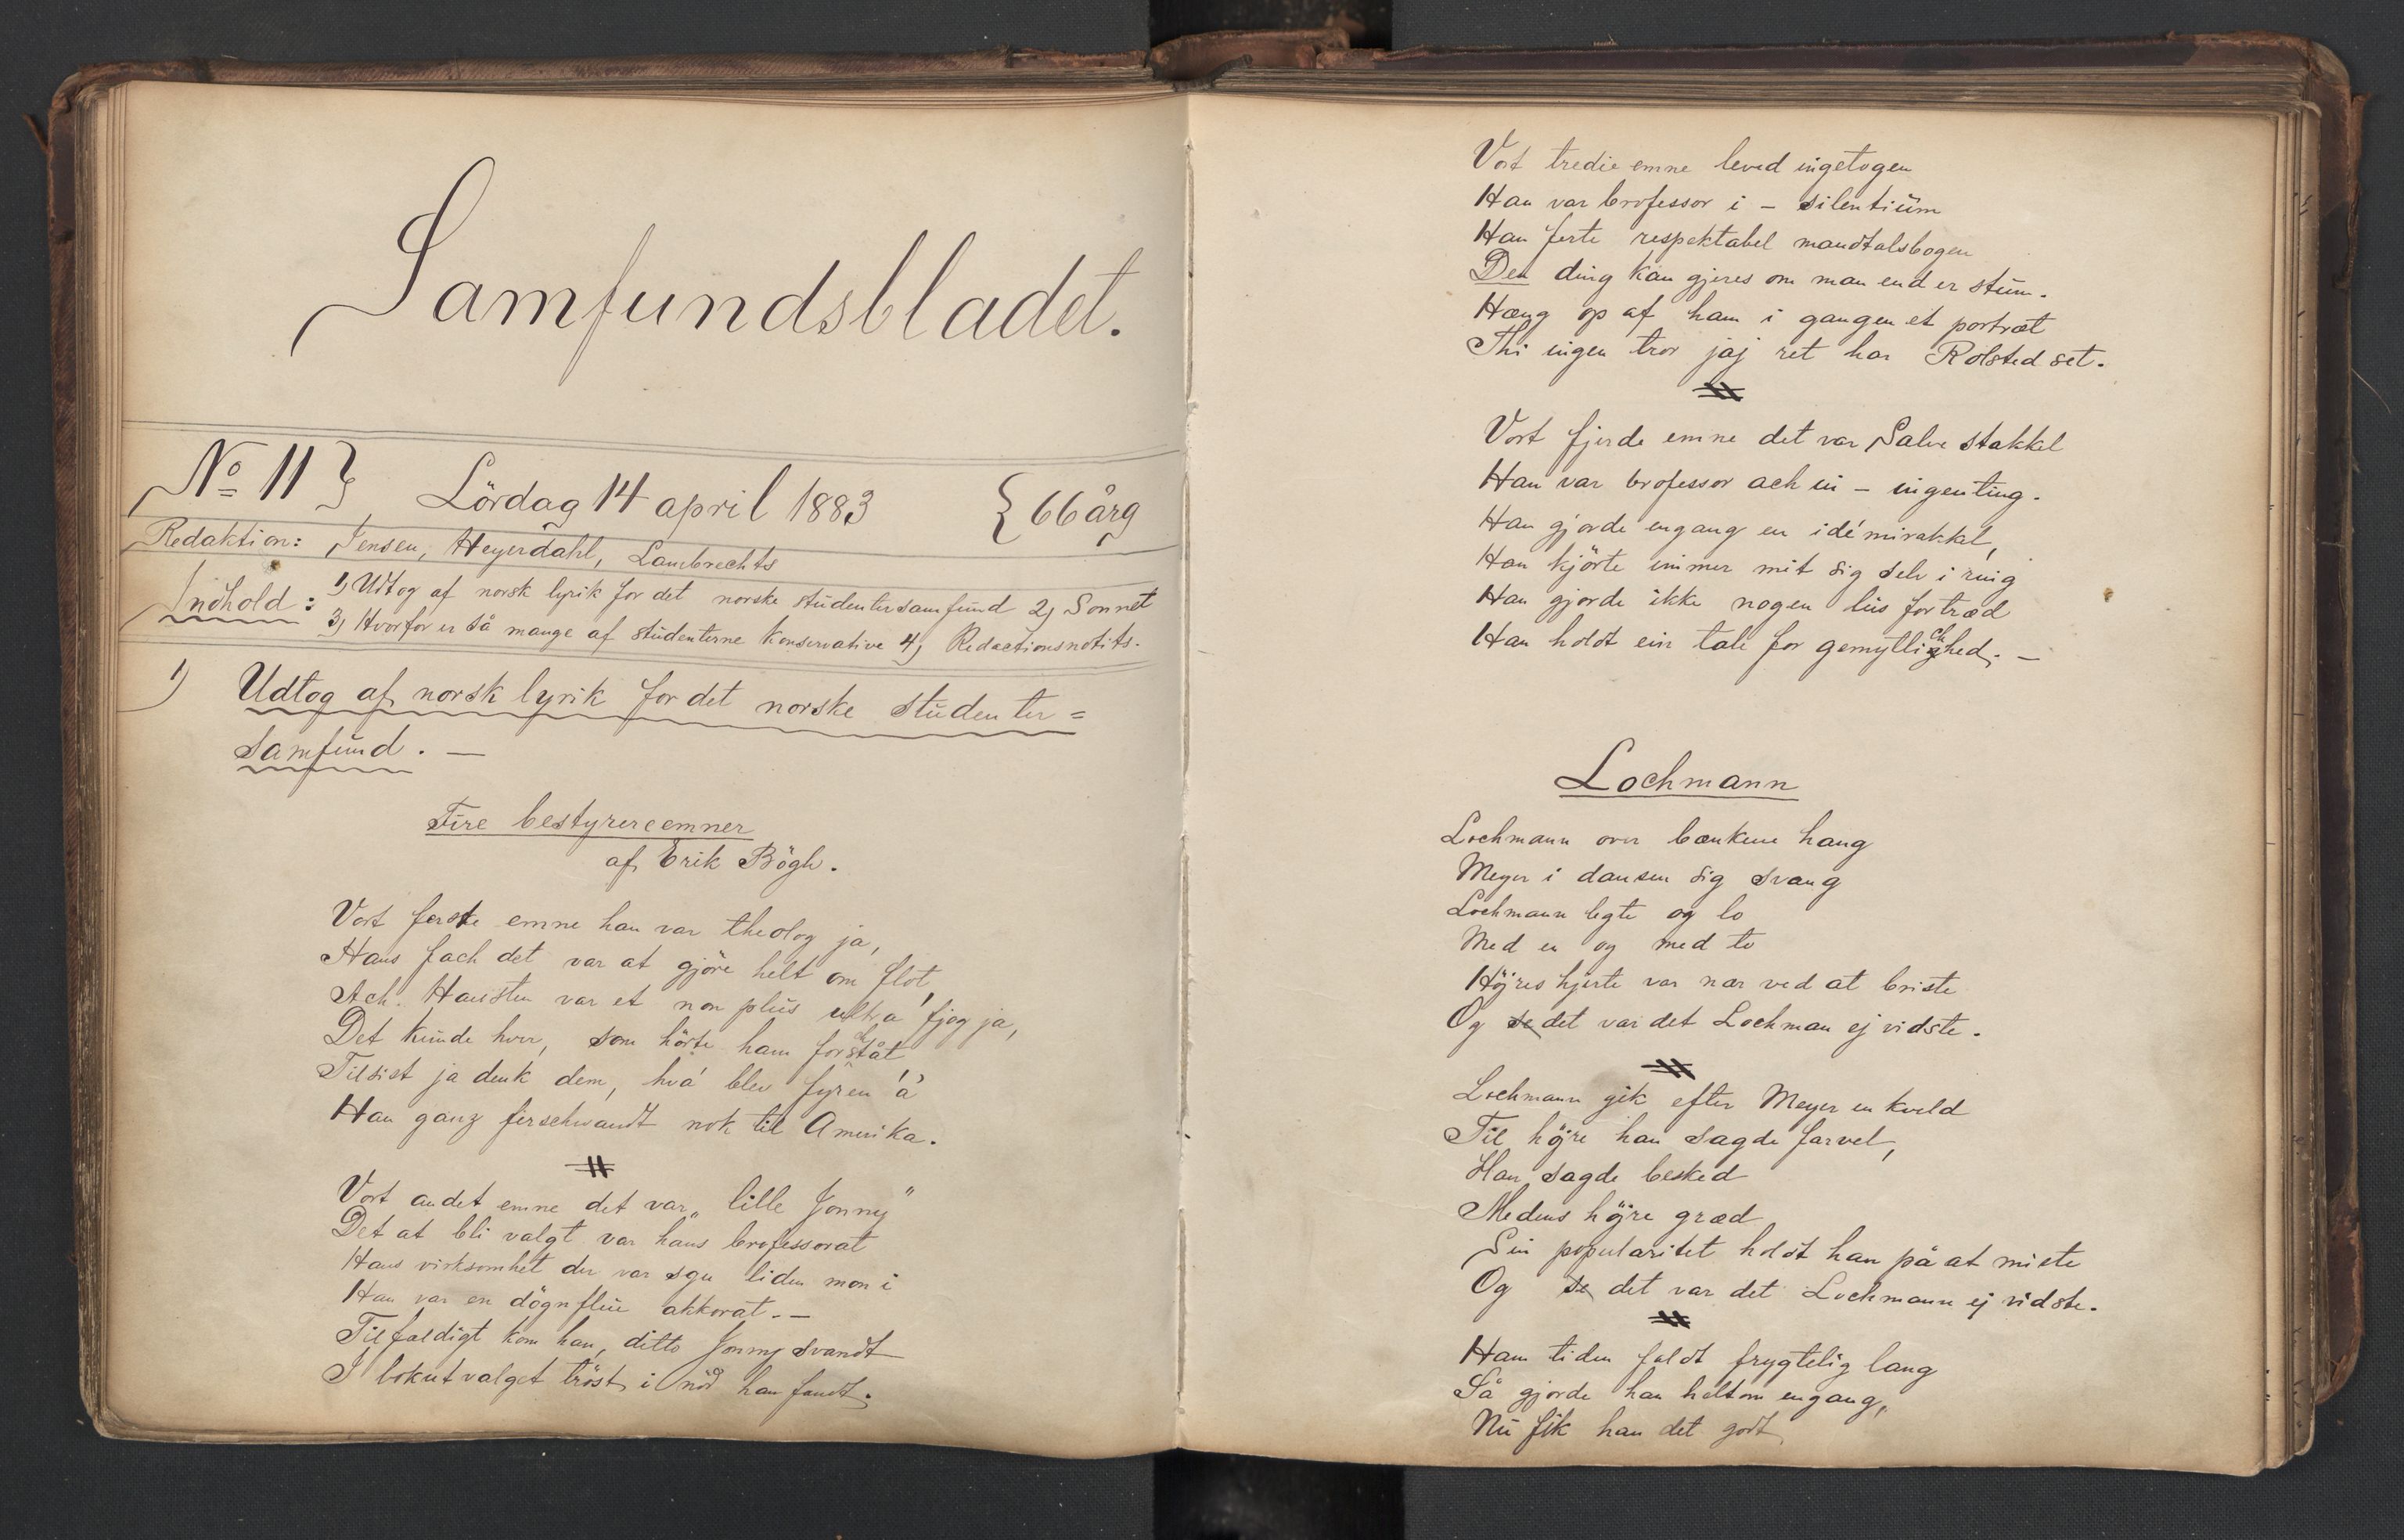 Samfundsbladet.
No 11} Lördag 14 april 1883 {66 årg
Redaktion: Jensen, Heyerdahl, Lambrechts
Indhold: 1) Udtog af norsk lyrik for det norske studentersamfund 2) Sonnet
3) Hvorfor er så mange af studenterne konservative 4) Redactionsnotits.
1) Udtog af norsk lyrik for det norske studenter=
samfund. —
Fire bestyrereemner
af Erik Bögh.
Vort ferste emne han var theolog ja,
Hans fach det var at gjöre helt om flot,
Ach. Hansten var et non plus ultra fjog ja,
Det kunde hver, som hörte ham forståt
Tilsist ja denk dem, hva blev fyren a
Han ganz ferschwandt nok til Amerika.
Vort andet emne det var „lille Jonny"
Det at bli valgt var hans brofessorat
Hans virksomhet der var sgu liden mon i
Han var en dögnflue akkorat. —
Tilfældigt kom han, ditto Jonny svandt
I bokutvalget tröst i nöd han fandt.
Vort tredie emne leved ingetogen
Han var brofessor i – silentium
Han ferte respektabel mandtalsbogen
Den ding kan gjeres om man end er stum.
Hæng op af ham i gangen et portræt
Thi ingen tror jaj ret har Rolsted set.
Vort fjerde emne det var Salve stakkel
Han var brofessor ach in – ingenting.
Han gjorde engang en idémirakkel,
Han kjörte immer mit sig selv i ring
Han gjorde ikke nogen lus fortræd
Han holdt ein tale for gemytlichhed. —
Lochmann
Lochmann over bænkene hang
Meyer i dansen sig svang
Lochmann legte og lo
Med en og med to
Höjres hjerte var nær ved at briste
Og se det var det Lochman ej vidste.
Lochmann gik efter Meyer en kveld
Til höjre han sagde farvel,
Han sagde besked
Medens höjre græd
Sin popularitet holdt han på at miste
Og se det var det Lochmann ej vidste.
Ham tiden faldt frygtelig lang
Så gjorde han heltom engang,
Nu fik han det godt